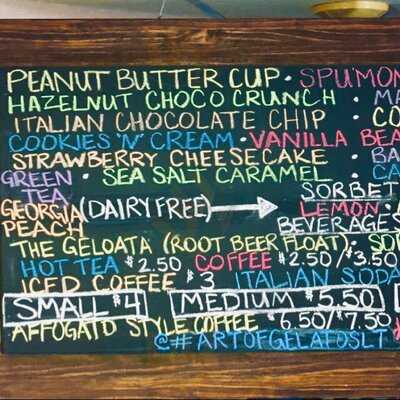 PEANUT BUTTER CUP · SPUMON
HAZELNUT CHOCO CRUNCH · MA
ITALIAN CHOCOLATE CHIP · CO
COOKIES 'N' CREAM · VANILLA BEA
STRAWBERRY CHEESECAKE · BA
GREEN TEA · SEA SALT CARAMEL · CA
SORBET
GEORGIA PEACH (DAIRY FREE) → LEMON ·
BEVERAGES
THE GELOATA (ROOT BEER FLOAT): SO
HOT TEA $2.50 COFFEE $2.50/$3.50
ICED COFFEE $3 ITALIAN SODA
SMALL $4 MEDIUM $5.50
AFFOGATO STYLE COFFEE $6.50/$7.50
@#ARTOFGELATOSLT